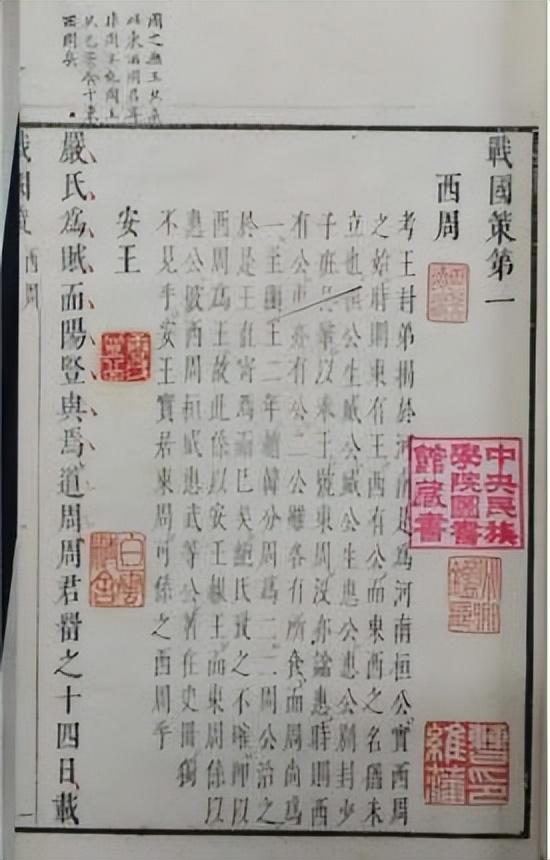 戰國策第一
西周
考王封弟揭於河南是爲河南桓公實西周
之始時則東有王西有公而東西之名猶未
立也桓公生威公威公生惠公惠公別封少
子班於鞏以奉王號東周沒亦諡惠時則西
有公東亦有公二公雖各有所食而周尚爲
一至顯王二年趙韓分周爲二二周公治之
於是王寄焉而已矣鮑氏攷之不確卽以
西周爲王故此係以安王赧王而東周係以
惠公彼西周桓威惠武等公著在史冊獨
不見乎安王實居東周可係之西周乎
安王
嚴氏爲賊而陽豎與焉道周周君留之十四日載
戰國策 西周
一
中央民族
學院圖書
館藏書
白雲